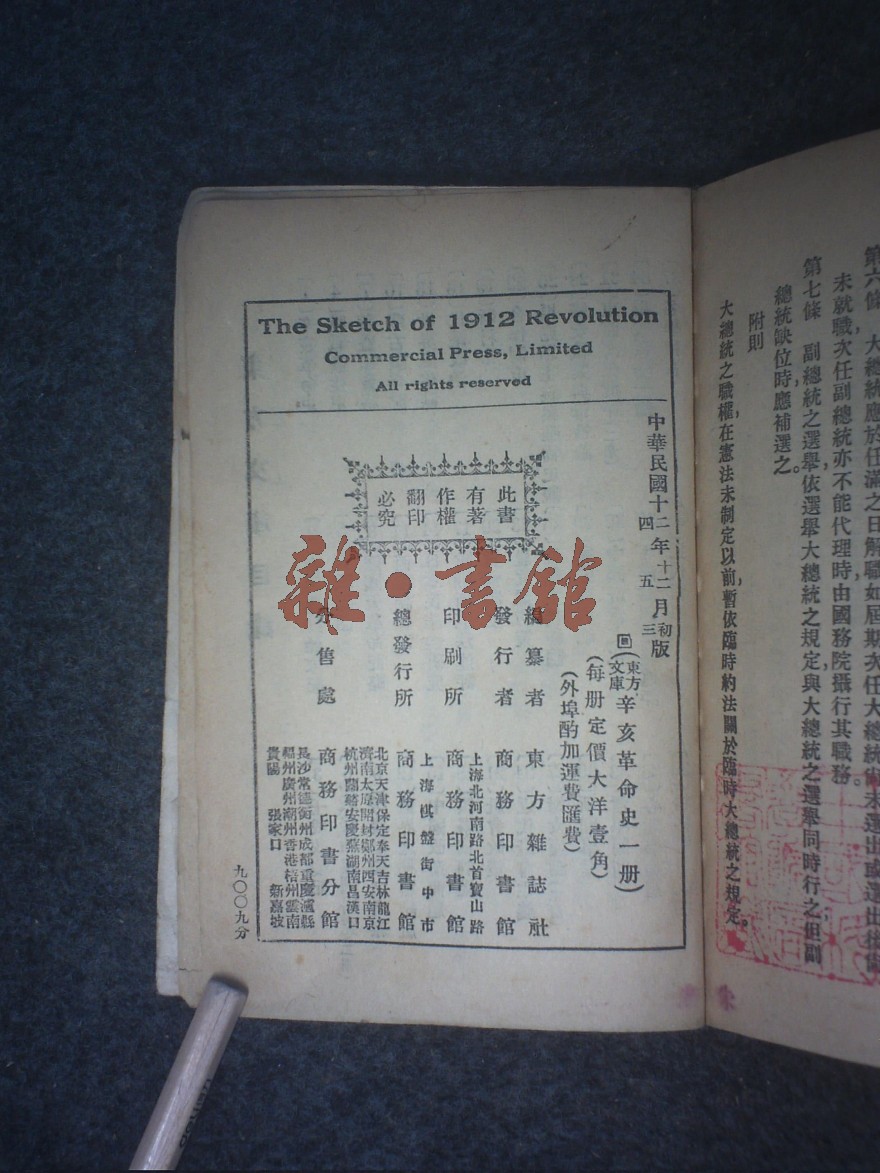 The Sketch of 1912 Revolution
Commercial Press, Limited
All rights reserved
中華民國十二年十二月初版
四 五 三
回(東方文庫)辛亥革命史一册)
(每册定價大洋壹角)
(外埠酌加運費匯費)
編纂者 東方雜誌社
發行者 商務印書館
上海北河南路北首寶山路
印刷所 商務印書館
上海棋盤街中市
總發行所 商務印書館
北京天津保定奉天吉林龍江
濟南太原開封鄭州西安南京
杭州蘭谿安慶蕪湖南昌漢口
分售處 商務印書分館
長沙常德衡州成都重慶瀘縣
福州廣州潮州香港梧州雲南
貴陽 張家口 新嘉坡
此書
有著
作權
翻印
必究
九〇〇九分
雜·書館
第六條 大總統應於任滿之日解職如屆期次任大總統
未就職次任副總統亦不能代理時由國務院攝行其職務。
第七條 副總統之選舉依選舉大總統之規定與大總統之選舉同時行之但副
總統缺位時應補選之。
附則
大總統之職權,在憲法未制定以前,暫依臨時約法關於臨時大總統之規定。